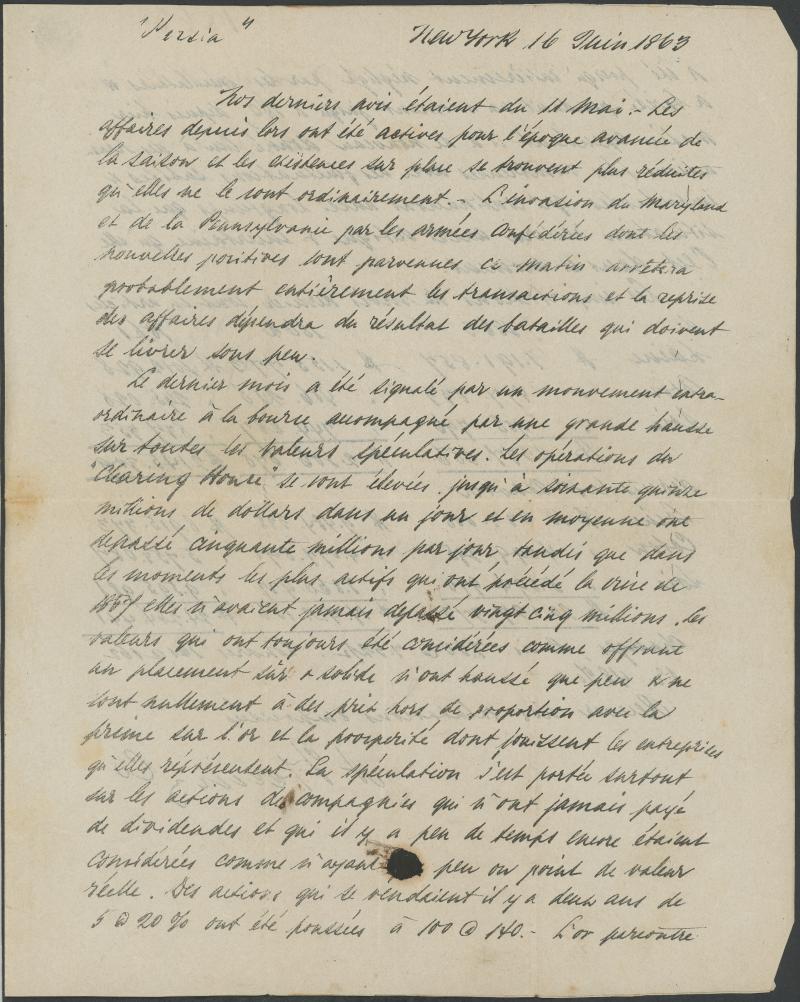 "Persia"
New York 16 Juin 1863
Nos derniers avis étaient du 11 Mai.- Les
affaires depuis lors ont été actives pour l'époque avancée de
la saison et les existences sur place se trouvent plus réduites
qu'elles ne le sont ordinairement.- L'invasion du Maryland
et de la Pennsylvanie par les armées Confédérées dont les
nouvelles positives sont parvenues ce matin arrêtera
probablement entièrement les transactions et la reprise
des affaires dépendra du résultat des batailles qui doivent
se livrer sous peu.
Le dernier mois a été signalé par un mouvement extra-
ordinaire à la bourse accompagné par une grande hausse
sur toutes les valeurs spéculatives. Les opérations du
"Clearing House" se sont élevées jusqu'à soixante quinze
millions de dollars dans un jour et en moyenne ont
depassé cinquante millions par jour tandis que dans
les moments les plus actifs qui ont précédé la crise de
1857 elles n'avaient jamais depassé vingt cinq millions. Les
valeurs qui ont toujours été considérées comme offrant
un placement sûr & solide n'ont haussé que peu & ne
sont nullement à des prix hors de proportion avec la
prime sur l'or et la prosperité dont jouissent les entreprises
qu'elles représentent. La spéculation s'est portée surtout
sur les actions de compagnies qui n'ont jamais payé
de dividendes et qui il y a peu de temps encore étaient
considérées comme n'ayant peu ou point de valeur
réelle. Des actions qui se vendaient il y a deux ans de
5 @ 20 % ont été poussées à 100 @ 140.- L'or parcontre